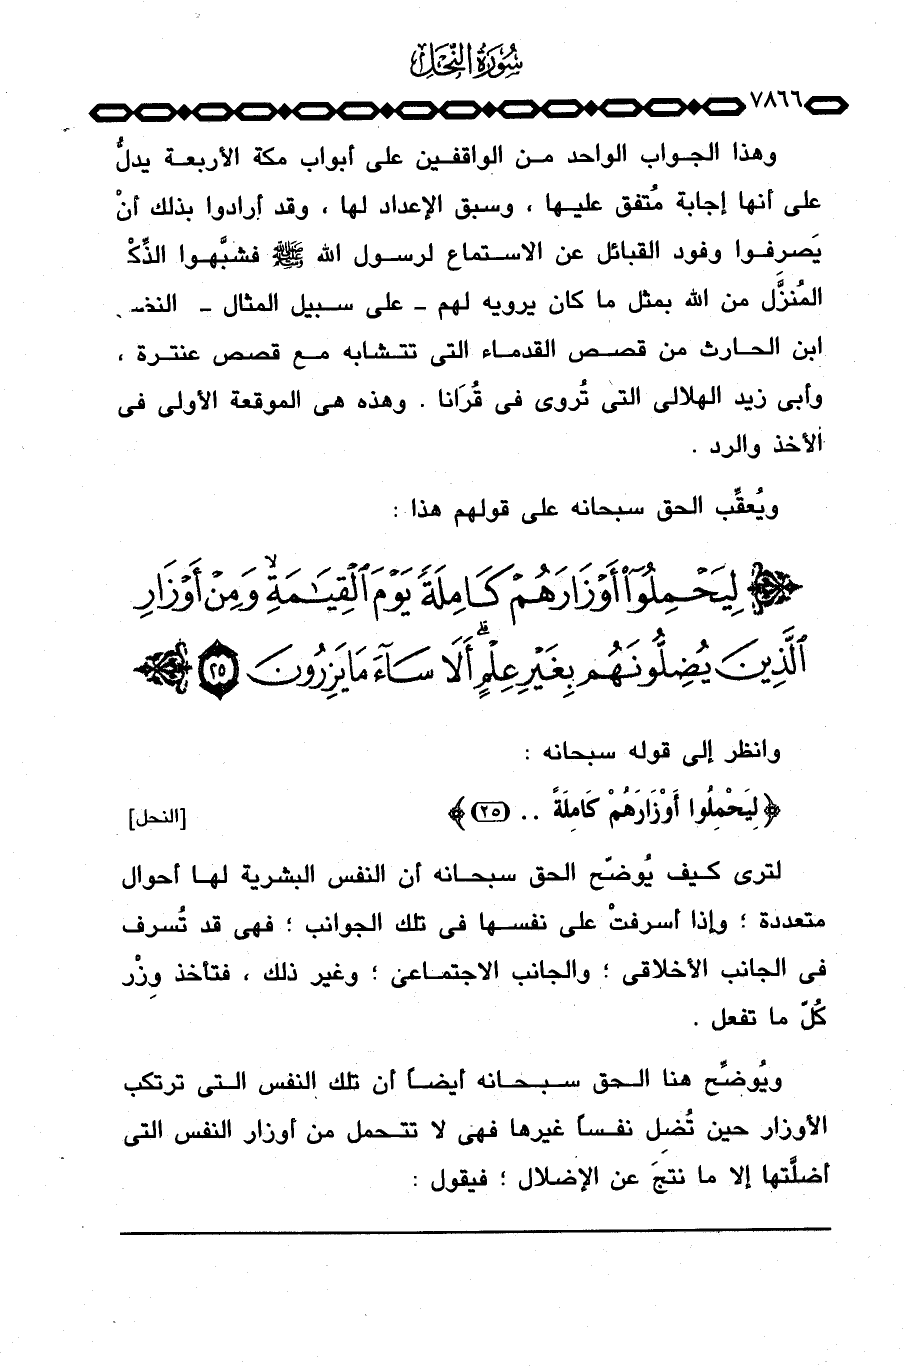 سورة النحل
٧٨٦٦
وهذا الجواب الواحد من الواقفين على أبواب مكة الأربعة يدلُّ
على أنها إجابة مُتفق عليها ، وسبق الإعداد لها ، وقد أرادوا بذلك أنْ
يَصرفوا وفود القبائل عن الاستماع لرسول الله ﷺ فشبَّهوا الذِّكْ
المُنزَّل من الله بمثل ما كان يرويه لهم – على سبيل المثال –
ابن الحارث من قصص القدماء التى تتشابه مع قصص عنترة ،
وأبى زيد الهلالى التى تُروى فى قُرَانا . وهذه هى الموقعة الأولى فى
الأخذ والرد .
ويُعقِّب الحق سبحانه على قولهم هذا :
لِيَحْمِلُوٓا۟ أَوْزَارَهُمْ كَامِلَةً يَوْمَ ٱلْقِيَـٰمَةِ ۙ وَمِنْ أَوْزَارِ
ٱلَّذِينَ يُضِلُّونَهُم بِغَيْرِ عِلْمٍ ۗ أَلَا سَآءَ مَا يَزِرُونَ ٢٥
وانظر إلى قوله سبحانه :
﴿لِيَحْمِلُوا أَوْزَارَهُمْ كَامِلَةً .. (٢٥)﴾ [النحل]
لترى كيف يُوضّح الحق سبحانه أن النفس البشرية لها أحوال
متعددة ؛ وإذا أسرفتْ على نفسها فى تلك الجوانب ؛ فهى قد تُسرف
فى الجانب الأخلاقى ؛ والجانب الاجتماعى ؛ وغير ذلك ، فتأخذ وِزْر
كُلّ ما تفعل .
ويُوضِّح هنا الحق سبحانه أيضاً أن تلك النفس التى ترتكب
الأوزار حين تُضِل نفساً غيرها فهى لا تتحمل من أوزار النفس التى
أضلَّتها إلا ما نتجَ عن الإضلال ؛ فيقول :